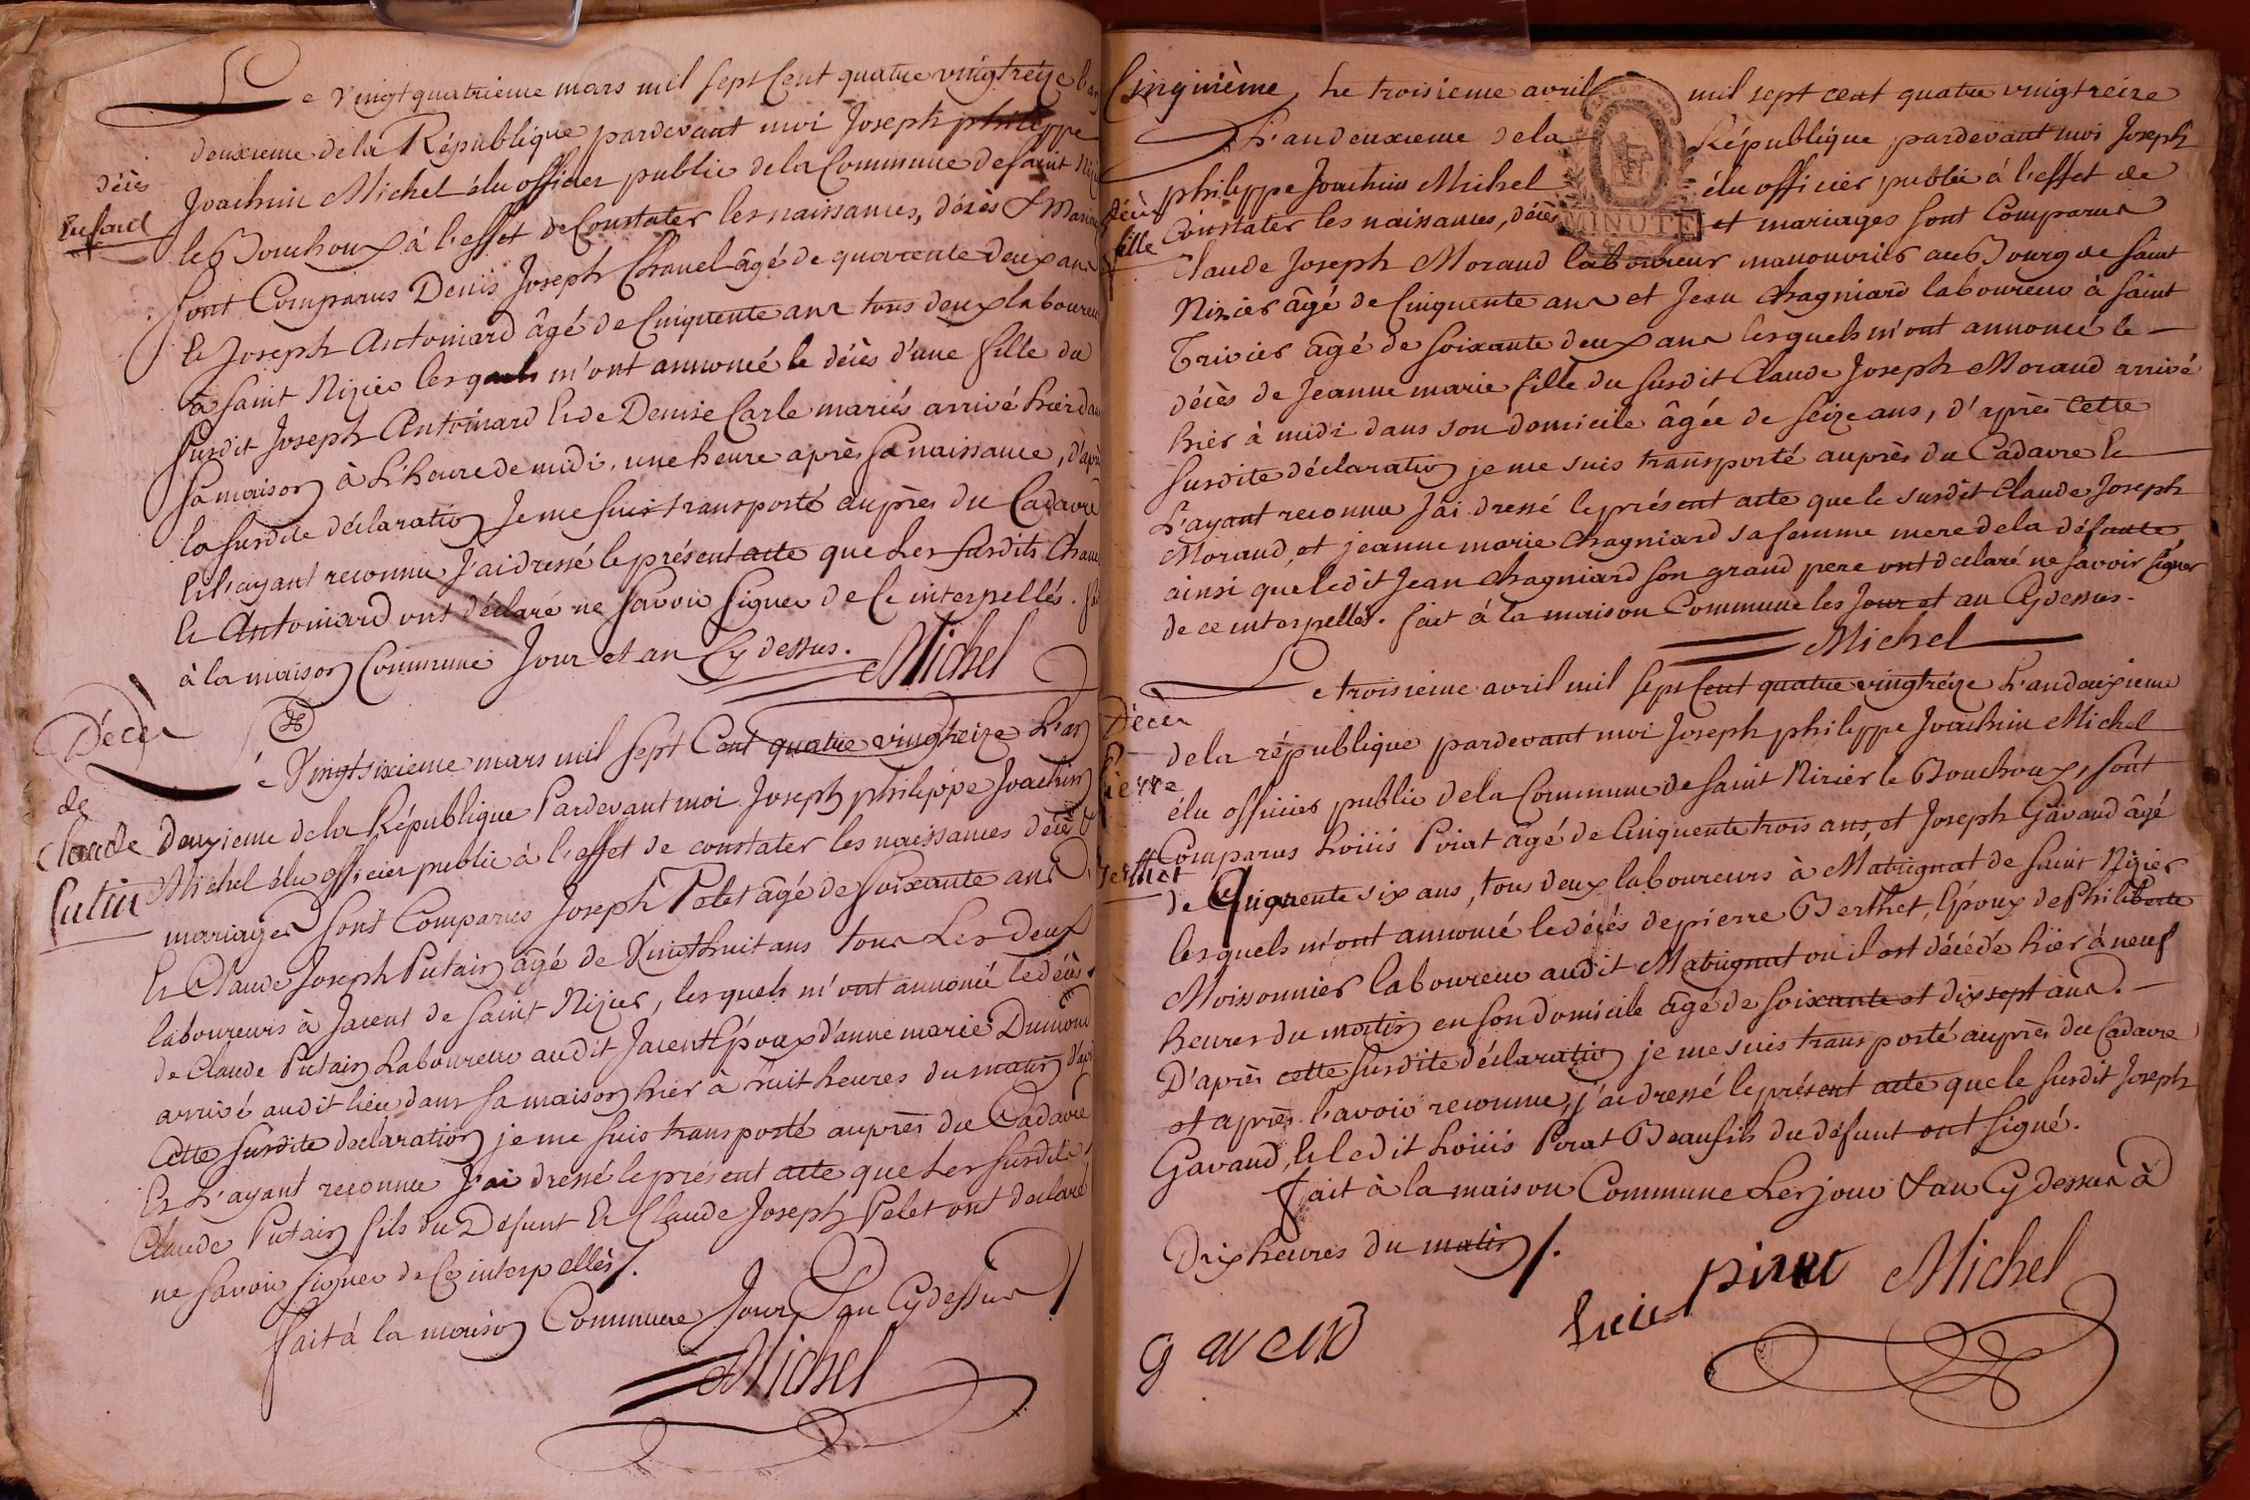 Le vingt quatrieme mars mil sept Cent quatre vingt treize l'an
deuxieme de la République pardevant moi Joseph philippe
décès
Joachim Michel élu officier public de la Commune de saint
Enfant
le Bouchoux à l'effet de Constater les naissances, décès &
sont Comparus Denis Joseph Chanel âgé de quarente deux ans
Et Joseph Antoinard âgé de Cinquente ans tous deux laboureurs
à saint Nizier lesquels m'ont annoncé le décès d'une fille du
susdit Joseph Antoinard Et de Denise Carle mariés arrivé hier
sa maison à L'heure de midi, une heure après sa naissance, d'après
la susdite déclaration Je me suis transporté auprès du Cadavre
Et l'ayant reconnue J'ai dressé le présent acte que Les susdits
Et Antoinard ont déclaré ne savoir signer de Ce interpellés.
à la maison Commune Jour et an Cy dessus.
Michel
Décès
Le Vingt sixieme mars mil sept Cent quatre vingt treize L'an
de
Claude
Deuxieme de la République Pardevant moi Joseph philippe Joachim
Putin
Michel élu officier public à l'effet de constater les naissances décès &
mariages sont Comparus Joseph Pelet âgé de soixante ans
Et Claude Joseph Putain âgé de Vingt huit ans tous Les deux
laboureurs à Jacent de saint Nizier, lesquels m'ont annoncé le décès
de Claude Putain Laboureur audit Jacent Epoux d'anne marie Dumond
arrivé audit lieu dans sa maison hier à huit heures du matin
Cette susdite declaration je me suis transporté auprès du Cadavre
Et L'ayant reconnue J'ai dressé le présent acte que Les susdits
Claude Putain fils du Défunt Et Claude Joseph Pelet ont declaré
ne savoir signer de Ce interpellès/.
fait à la maison Commune Jour & an Cy dessus /
Michel
Cinqinième, Le troisieme avril mil sept cent quatre vingt treize
L'an deuxieme de la République pardevant moi Joseph
décès
philippe Joachim Michel élu officier public à l'effet de
fille
Constater les naissances, décès et mariages sont Comparus
MINUTE
Claude Joseph Morand laboureur manouvrier au Bourg de saint
Nizier âgé de Cinquente ans et Jean Chagniard laboureur à saint
Trivier âgé de soixante deux ans lesquels m'ont annoncé le
décès de Jeanne marie fille du susdit Claude Joseph Morand arrivé
hier à midi dans son domicile âgée de seize ans, d'après cette
susdite déclaration je me suis transporté auprès du Cadavre Et
L'ayant reconnue J'ai dressé le présent acte que le susdit Claude Joseph
Morand, et jeanne marie Chagniard sa femme mere de la défunte,
ainsi que ledit Jean Chagniard son grand pere ont declaré ne savoir signer
de ce interpellés. fait à la maison Commune les Jour et an Cy dessus.
Michel
Le troisieme avril mil sept Cent quatre vingt treize L'an deuxieme
Décès
de la république pardevant moi Joseph philippe Joachim Michel
Pierre
élu officier public de la Commune de saint Nizier le Bouchoux, sont
Comparus Loüis Poirat âgé de Cinquente trois ans, et Joseph Gavand âgé
Berthet
de Cinquente six ans, tous deux laboureurs à Matignat de saint Nizier
lesquels m'ont annoncé le décés de pierre Berthet, Epoux de Philiberte
Moissonnier laboureur audit Matignat ou il est décédé hier à neuf
heures du matin en son domicile âgé de soixante et dix sept ans.
D'après cette susdite déclaration je me suis transporté auprès du Cadavre
et après l'avoir reconnue, j'ai dressé le présent acte que le susdit Joseph
Gavand, Et ledit Loüis Poirat Beaufils du défunt ont signé.
fait à la maison Commune Les jour & an Cy dessus à
Dix heures du matin /.
Michel
gavand